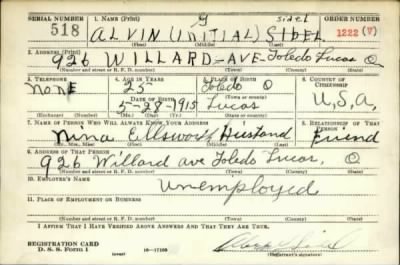 SERIAL NUMBER 1. NAME (Print) G sidel ORDER NUMBER
518 ALVIN (INITIAL) SIDEL 1222 (V)
(First) (Middle) (Last)
2. ADDRESS (Print)
926 WILLARD-AVE-Toledo Lucas O
(Number and street or R. F. D. number) (Town) (County) (State)
3. TELEPHONE 4. AGE IN YEARS 5. PLACE OF BIRTH 6. COUNTRY OF CITIZENSHIP
NONE 25 Toledo O
DATE OF BIRTH (Town or county)
5-28-1915 Lucas U.S.A.
(Mo.) (Day) (Yr.) (State or country)
7. NAME OF PERSON WHO WILL ALWAYS KNOW YOUR ADDRESS 8. RELATIONSHIP OF THAT PERSON
Nina Ellsworth Friend
(Mr., Mrs., Miss) (First) (Middle) (Last)
9. ADDRESS OF THAT PERSON
926 Willard ave Toledo Lucas, O
(Number and street or R. F. D. number) (Town) (County) (State)
10. EMPLOYER'S NAME
Unemployed
11. PLACE OF EMPLOYMENT OR BUSINESS
(Number and street or R. F. D. number) (Town) (County) (State)
I AFFIRM THAT I HAVE VERIFIED ABOVE ANSWERS AND THAT THEY ARE TRUE.
REGISTRATION CARD
D. S. S. Form 1 (over) 16—17105